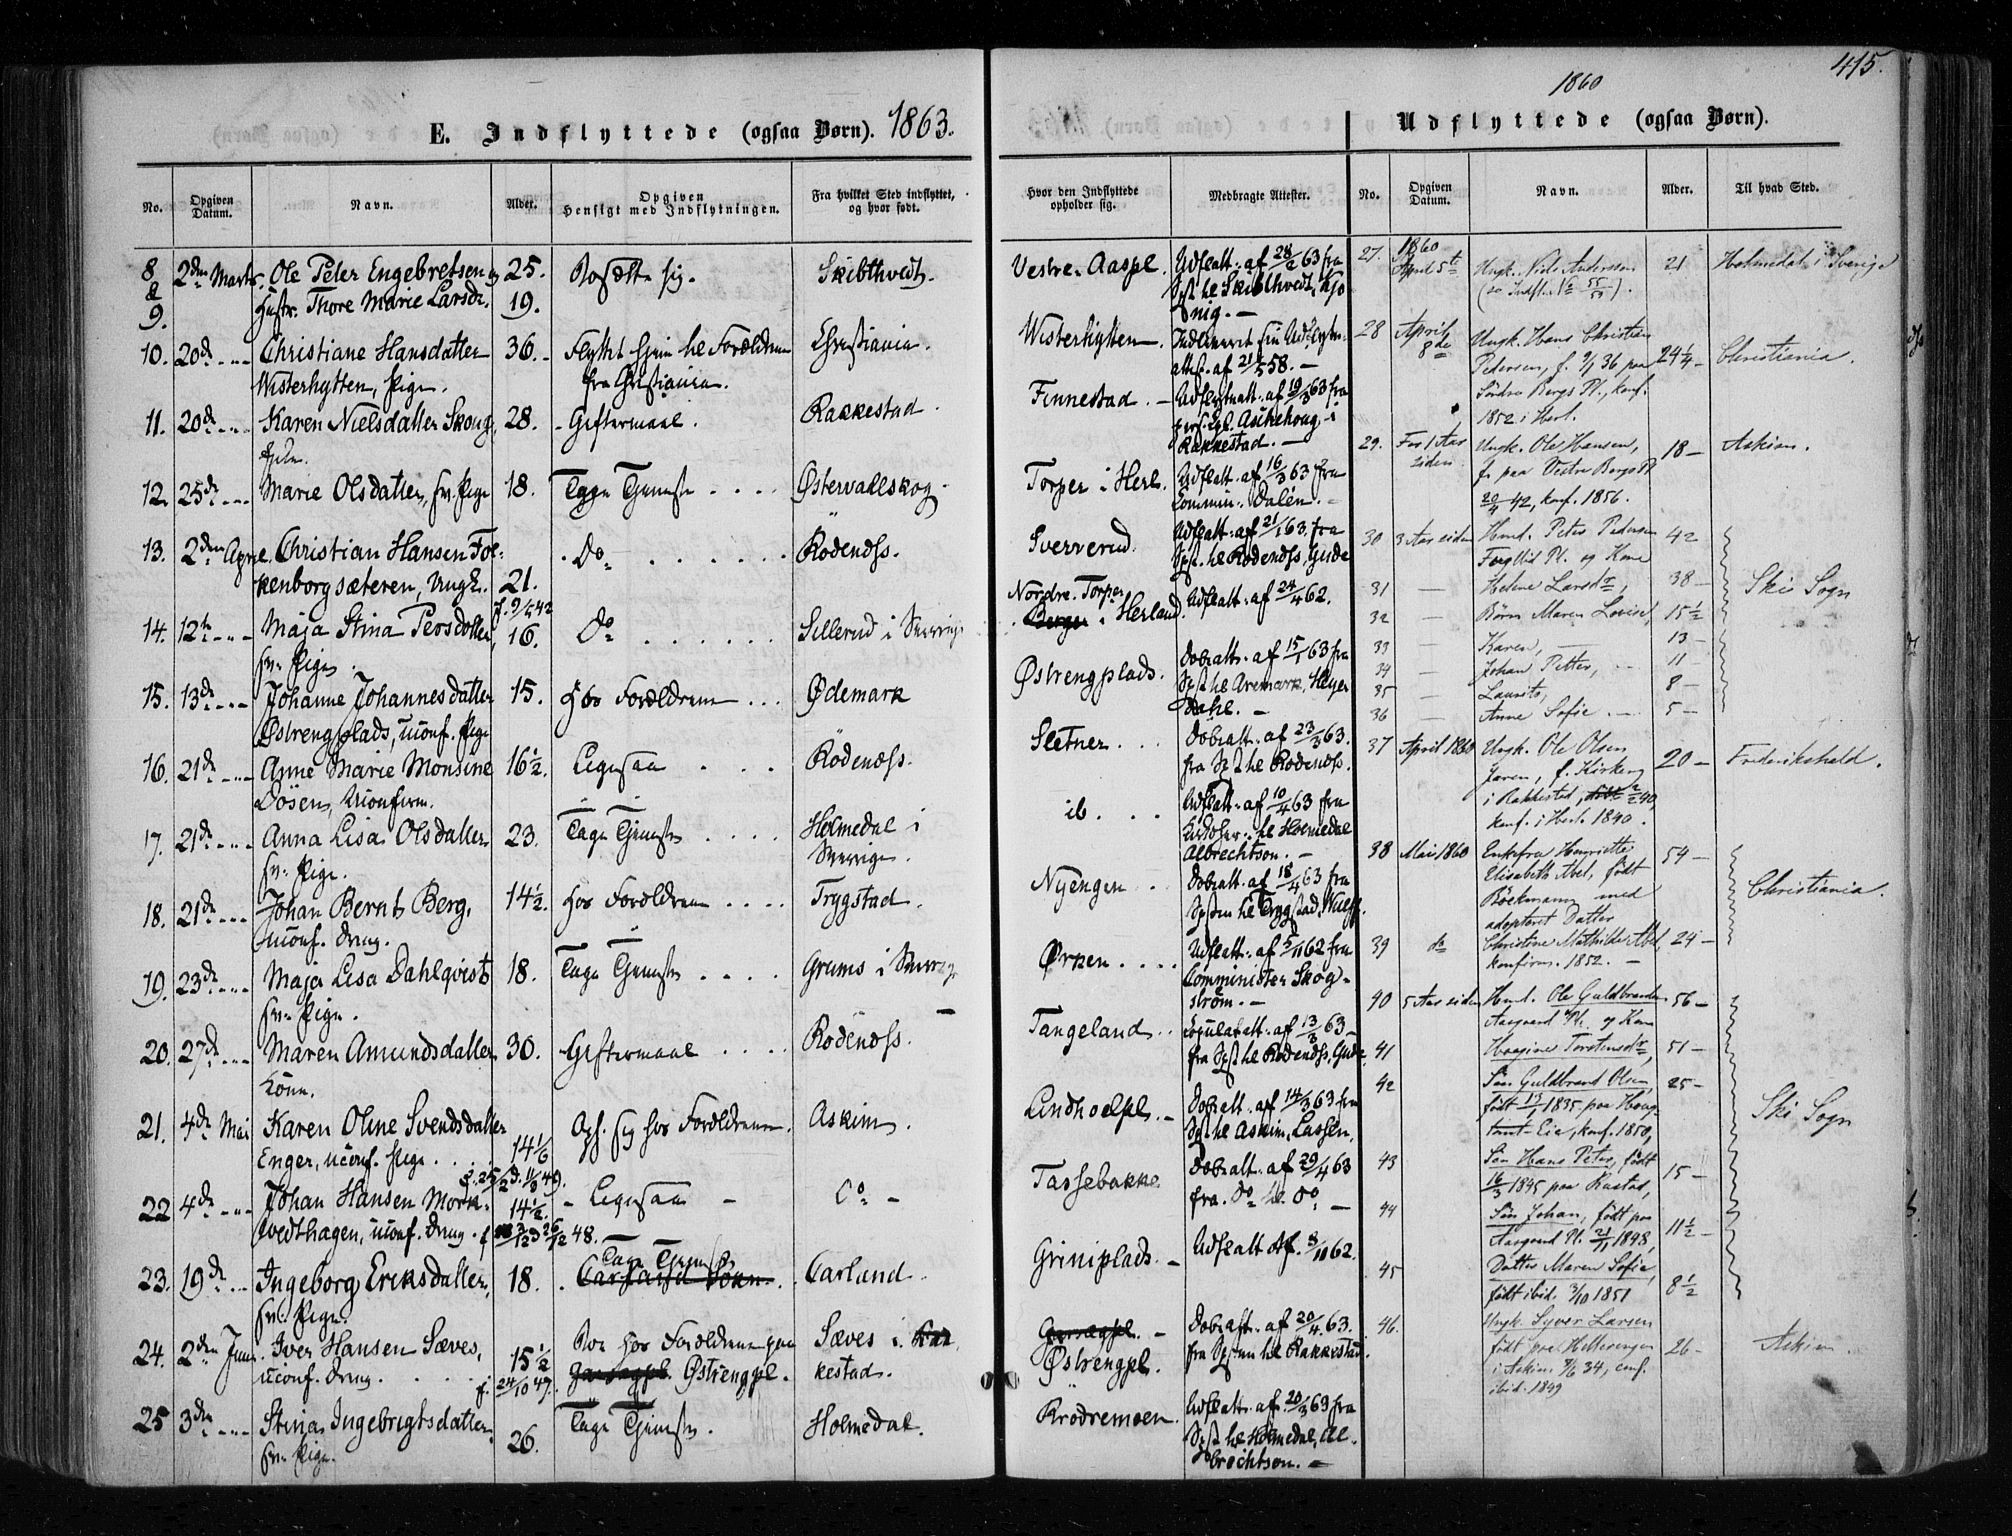 415.
1860
E. Indflyttede (ogsaa Børn). 1863.
Udflyttede (ogsaa Børn).
No.
Opgiven Datum.
Navn.
Alder.
Opgiven Hensigt med Indflytningen.
Fra hvilket Sted indflyttet, og hvor født.
Hvor den Indflyttede opholder sig.
Medbragte Attester.
No.
Opgiven Datum.
Navn.
Alder.
Til hvad Sted.
8 2den Marts. Ole Peter Engebretsen og 25. Bosætte sig. Skibthvedt.
&
9. Hustr. Thore Marie Larsdr. 19.
10. 20de Christiane Hansdatter 36. Flyttet hjem til Forældrene Christiania.
Wisterhytten, Pige. fra Christiania.
11. 20de Karen Nielsdatter Skoug 28. Giftermaal. Rakkestad.
12. 25de Marie Olsdatter, sv. Pige 18. Tage Tjeneste Østervallskog.
13. 2den April. Christian Hansen Fol- Do Rødenæss.
kenborgsæteren, Ungk. 21.
f. 9/5 42
14. 12te Maja Stina Persdotter, 16. Do Sillerud i Sverrige
sv. Pige.
15. 13de Johanne Johannesdatter 15. Hos Forældrene Ødemark
Østrengplads, uconf. Pige
16. 21de Anne Marie Monsine 16½. Ligesaa Rødenæss.
Dösen, Uconfirm.
17. 21de Anna Lisa Olsdatter 23. Tage Tjeneste Holmedal i
sv. Pige. Sverrige.
18. 21de Johan Bernt Berg, 14½. Hos Forældrene Trygstad.
uconf. Dreng.
19. 23de Maja Lisa Dahlqvist 18. Tage Tjeneste Grums i Sverrig
sv. Pige.
20. 27de Maren Amundsdatter 30. Giftermaal Rødenæss.
Kone.
21. 4de Mai Karen Oline Svendsdatter Oph. sig hos Forældrene. Askim.
Enger, uconf. Pige. 14 1/6
22 4de Johan Hansen Mørk- 14½. Ligesaa Do
vedthagen, uconf. Dreng. 48.
23. 19de Ingeborg Eriksdatter, 18. Tage Tjeneste Carland.
sv. Pige.
24. 2den Juni. Iver Hansen Sæves, 15½ Bor hos Forældrene paa Sæves i Rak
uconf. Dreng. f. 24/10 47. Østrengpl. kestad.
25 3die Stina Ingebrigtsdatter, 26. Tage Tjeneste. Holmedal.
sv. Pige.
Vestre Aaspl. Udflatt. af 28/2 63 fra
Spst til Skibthvedt, Kjø
nig.
Wisterhytten. Indleveret sin Udflytn.
attest af 21/5 58.
Finnestad. Udflytnatt. af 19/3 63 fra
pers. Cpl. Aschehoug i
Rakkestad.
Torper i Herl. Udflatt. af 16/3 63 fra
Commin. Dalén.
Sververud. Udflatt. af 21/1 63. fra
Spst. til Rødenæss, Gude
Nordre Torper Udflatt. af 24/4 62.
i Herland.
Østrengplads. Dobsatt. af 15/1 63 fra
Spst til Aremark, Heyer
dahl.
Sletner. Dobsatt. af 23/3 63.
fra Spst til Rødenæss.
ib. Udflatt. af 10/4 63 fra
Kirkeher. til Holmedal
Albrechtson.
Nyengen Dobsatt. af 18/4 63 fra
Spsten til Trygstad, Wulff.
Ørken. Udflatt. af 5/11 62 fra
Comminister Skog-
ström.
Tangeland Copulatatt. af 13/3 63
fra Spst til Rødenæss, Gude
Lindhollpl. Dobsatt. af 14/3 63 fra
Spst til Askim, Lassen.
Tassebakke Dobsatt. af 29/4 63
fra. Do til Do
Griniplads. Udflatt af. 3/11 62.
Østrengpl. Dobsatt. af 20/4 63.
fra Spsten til Rakkestad.
Krodremoen. Udflatt. af. 20/3 63 fra
Spst til Holmedal, Al-
brechtson.
27. 1860 April 5te Ungk. Nils Andersen 21 Holmedal i Sverige
28 April 8de Ungk. Hans Christian
Pedersen, f. 9/1 36 paa 24¼ Christiania.
Søndre Bergs Pl., konf.
1852 i Herl.
29. For 1 Aar siden Ungk. Ole Hansen, 18 Askim.
f. paa Vestre Bergs Pl
20/4 42, konf. 1856.
30 3 Aar siden Husmd. Peter Pedersen 42
Pl. og Kone
31 Helene Larsdtr, 38 Ski Sogn
32 Børn Maren Lovise, 15½
33 Karen, 13
34 Johan Petter, 11
35 Laurits, 8
36 Anne Sofie 5
37 April 1860 Ungk. Ole Olsen
Jaren, f. Kirkeng 20 Frederikshald.
i Rakkestad, 2/2 40,
konf. i Herl. 1840.
38 Mai 1860 Enkefru Henriette 54
Elisabeth Abel, født
Böckmann med Christiania.
adopteret Datter
39 do Christine Mathilde Abel 24
konfirm. 1852.
40 5 Aar siden Husmd. Ole Guldbrandsen 56
Aasgaard Pl. og Kone
41 Torstensdtr, 51
42 Søn Guldbrand Olsen, 25
født 19/1 1835 paa Houg Ski Sogn
Eie, konf. 1850,
43 Søn Hans Peter, født
16/3 1845 paa Rustad, 15
44 Søn Johan, født paa
Aasgaard Pl. 21/11 1848, 11½
45 Datter Maren Sofie,
født ibid. 3/10 1851 8½
46. Ungk. Syver Larsen
født paa Hellesengen 26 Askim.
i Askim 9/6 34, conf.
ibid. 1849